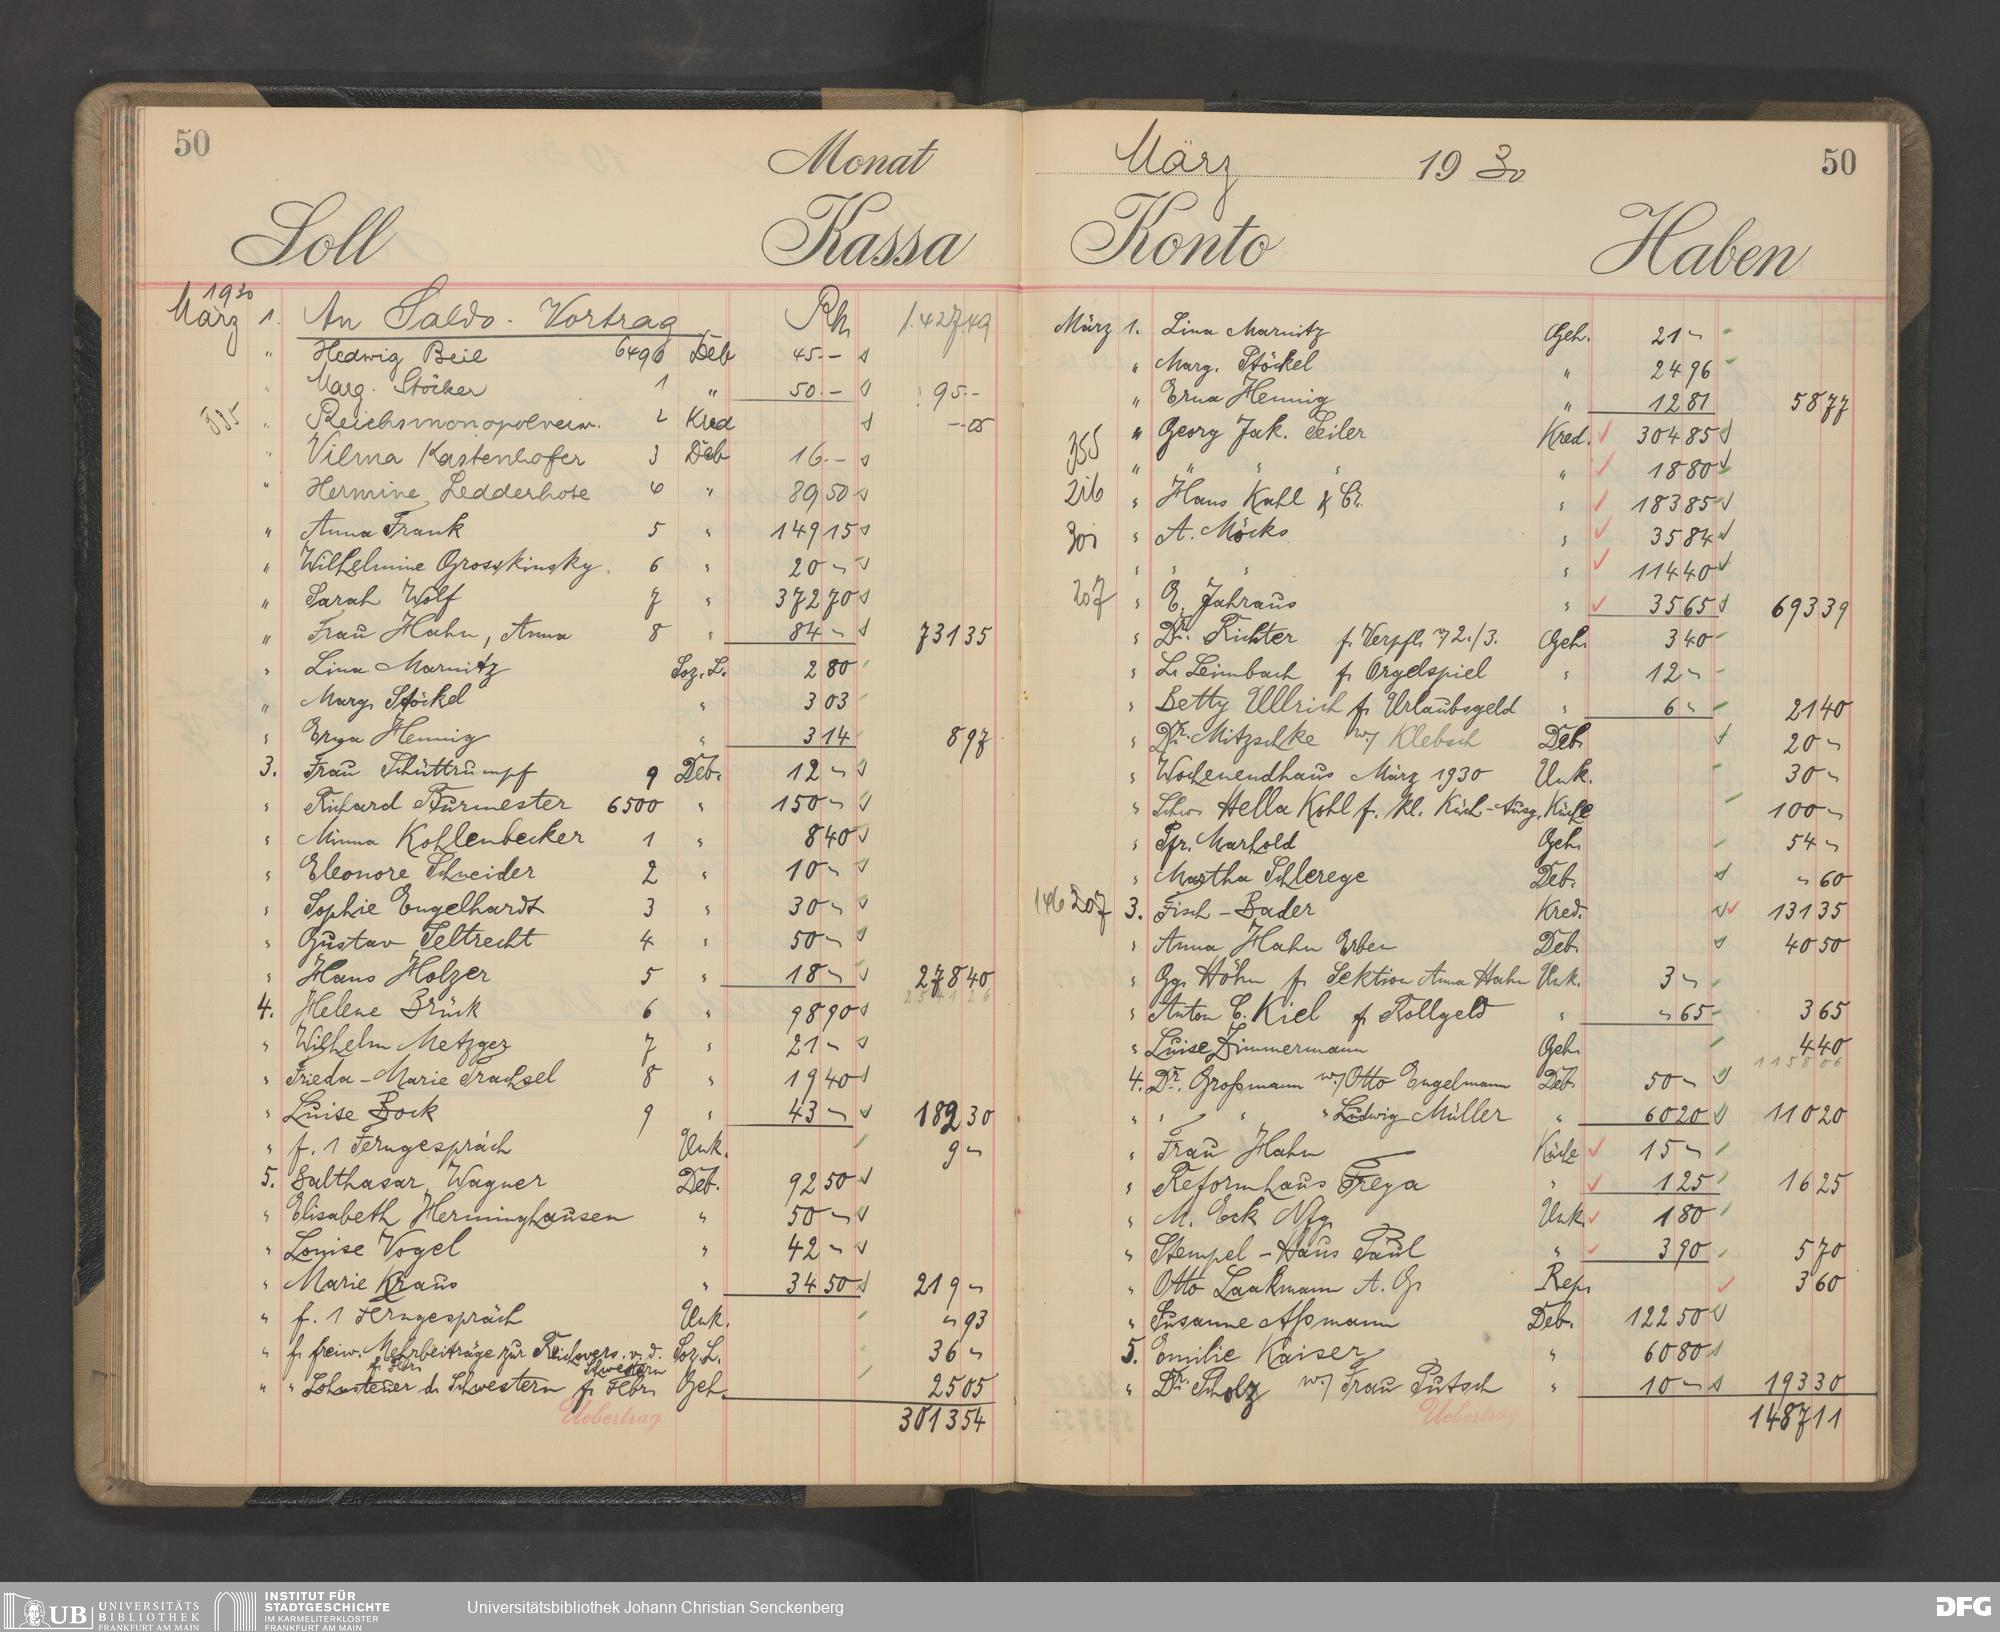 50
Monat
Soll
Kassa
1930
März 1. An Saldo-Vortrag Rm 1427 49
" Hedwig Beil 6496 Deb 45.-
" Marg. Stöcker 1 " 50.- 95.-
" Reichsmonopolverw. 2 Kred -- 05
" Vilma Kastenhofer 3 Deb 16.-
" Hermine Ledderhose 4 " 89 50
" Anna Frank 5 " 149 15
" Wilhelmine Grosskinsky. 6 " 20 -
" Sarah Wolf 7 " 372 70
" Frau Hahn, Anna 8 " 84 - 731 35
" Lina Marnitz Soz. L. 2 80
" Marg. Stöckel " 3 03
" Erna Hennig " 3 14 8 97
3. Frau Schüttrumpf 9 Deb. 12 -
" Richard Burmester 6500 " 150 -
" Minna Kohlenbecker 1 " 8 40
" Eleonore Schneider 2 " 10 -
" Sophie Engelhardt 3 " 30 -
" Gustav Seltrecht 4 " 50 -
" Hans Holzer 5 " 18 - 278 40
2541 26
4. Helene Brück 6 " 98 90
" Wilhelm Metzger 7 " 21 -
" Frieda-Marie Trachsel 8 " 19 40
" Luise Bock 9 " 43 - 182 30
" f. 1 Ferngespräch Unk. 9 -
5. Balthasar Wagner Deb. 92 50
" Elisabeth Herminghausen " 50 -
" Louise Vogel " 42 -
" Marie Kraus " 34 50 219 -
" f. 1 Ferngespräch Unk. - 93
" f. freiw. Mehrbeiträge zur Reichsvers. v. d. Schwestern f. Febr. Soz. L. 36 -
" " Lohnsteuer d. Schwestern f. Febr. Geh. 25 05
Uebertrag 3013 54
März 19 30
50
Konto
Haben
März 1. Lina Marnitz Geh. 21 -
" Marg. Stöckel " 24 96
" Erna Hennig " 12 81 58 77
" Georg Jak. Seiler Kred. 304 85
355 " " " " " 18 80
216 " Hans Kahl & Co. " 183 85
301 " A. Möcks " 35 84
" " " " 114 40
207 " E. Jahraus " 35 65 693 39
" Dr. Richter f. Verpfl. 72./3. Geh. 3 40
" L. Leimbach f. Orgelspiel " 12 -
" Betty Ullrich f. Urlaubsgeld " 6 - 21 40
" Dr. Mitzschke w/ Klebsch Deb. 20 -
" Wochenendhaus März 1930 Unk. 30 -
" Schw. Hella Kohl f. kl. Küch.-Ausg. Küche 100 -
" Pfr. Marhold Geh. 54 -
" Martha Schlerege Deb. - 60
146 207 3. Fisch-Bader Kred. 131 35
" Anna Hahn Erben Deb. 40 50
" Gg. Höhn f. Sektion Anna Hahn Unk. 3 -
" Anton C. Kiel f. Rollgeld " - 65 3 65
" Luise Zimmermann Geh. 4 40
1158 06
4. Dr. Großmann w/ Otto Engelmann Deb. 50 -
" " " " Ludwig Müller " 60 20 110 20
" Frau Hahn Küche 15 -
" Reformhaus Freya " 1 25 16 25
" M. Eck Nfg. Unk. 1 80
" Stempel-Haus Paul " 3 90 5 70
" Otto Laakmann A.G. Rep. 3 60
" Susanne Assmann Deb. 122 50
5. Emilie Kaiser " 60 80
" Dr. Scholz w/ Frau Putsch " 10 - 193 30
Uebertrag 1487 11
UB UNIVERSITÄTS
BIBLIOTHEK
FRANKFURT AM MAIN
INSTITUT FÜR
STADTGESCHICHTE
IM KARMELITERKLOSTER
FRANKFURT AM MAIN
Universitätsbibliothek Johann Christian Senckenberg
DFG